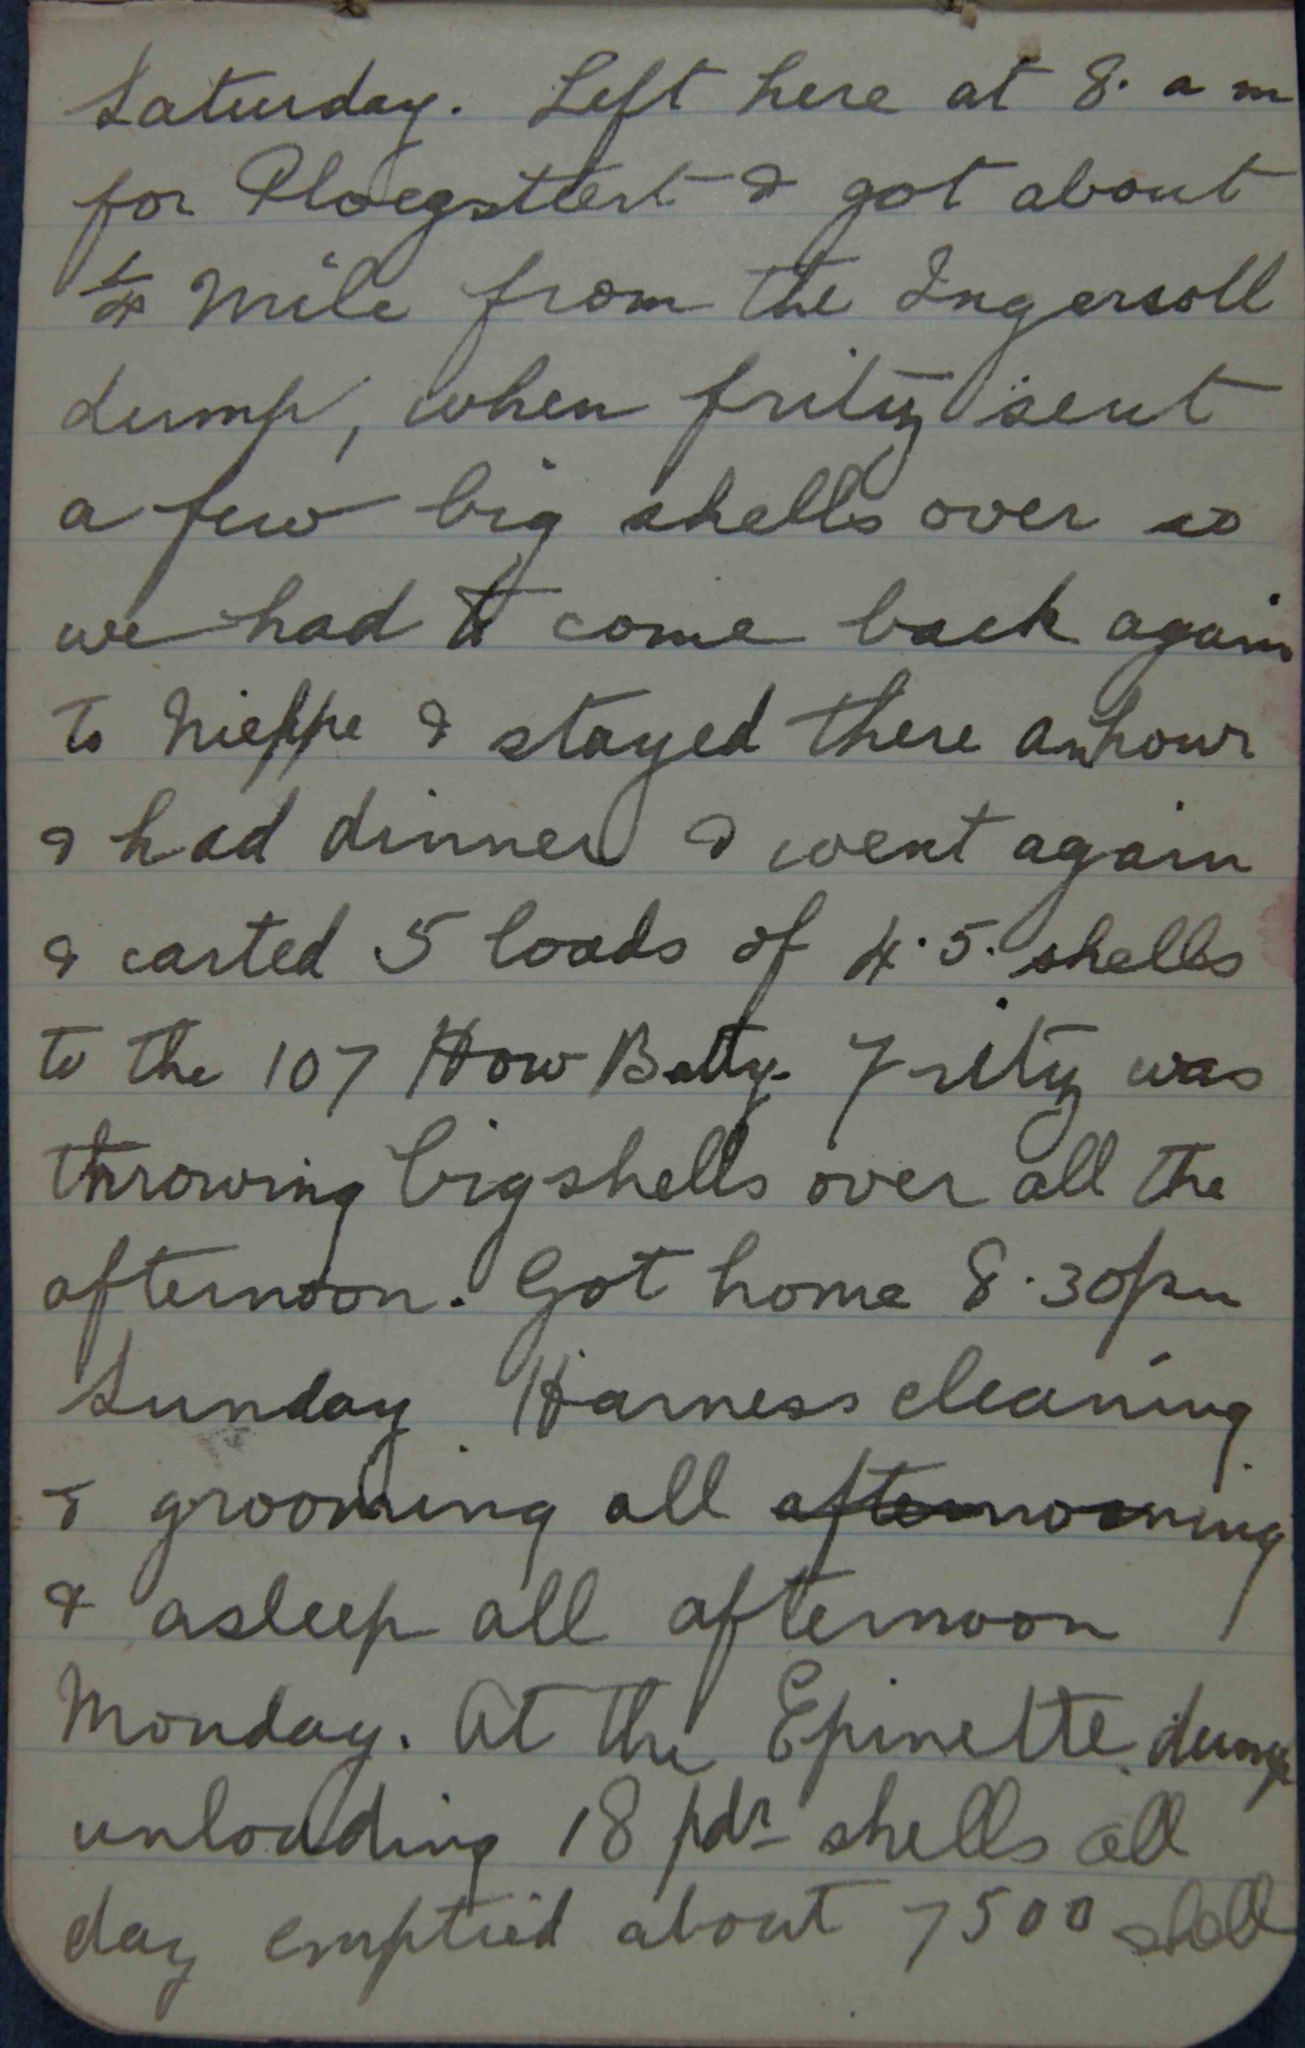 Saturday. Left here at 8. a m
for Ploegsttert & got about
1/4 mile from the Ingersoll
dump, when fritz sent
a few big shells over so
we had to come back again
to Nieppe & stayed there an hour
& had dinner & went again
& carted 5 loads of 4.5. shells
to the 107 How Batty. Fritz was
throwing big shells over all the
afternoon. Got home 8.30pm
Sunday Harness cleaning
& grooming all afternorning
& asleep all afternoon
Monday. At the Epinette dump
unloading 18 pdr shells all
day emptied about 7500 shell